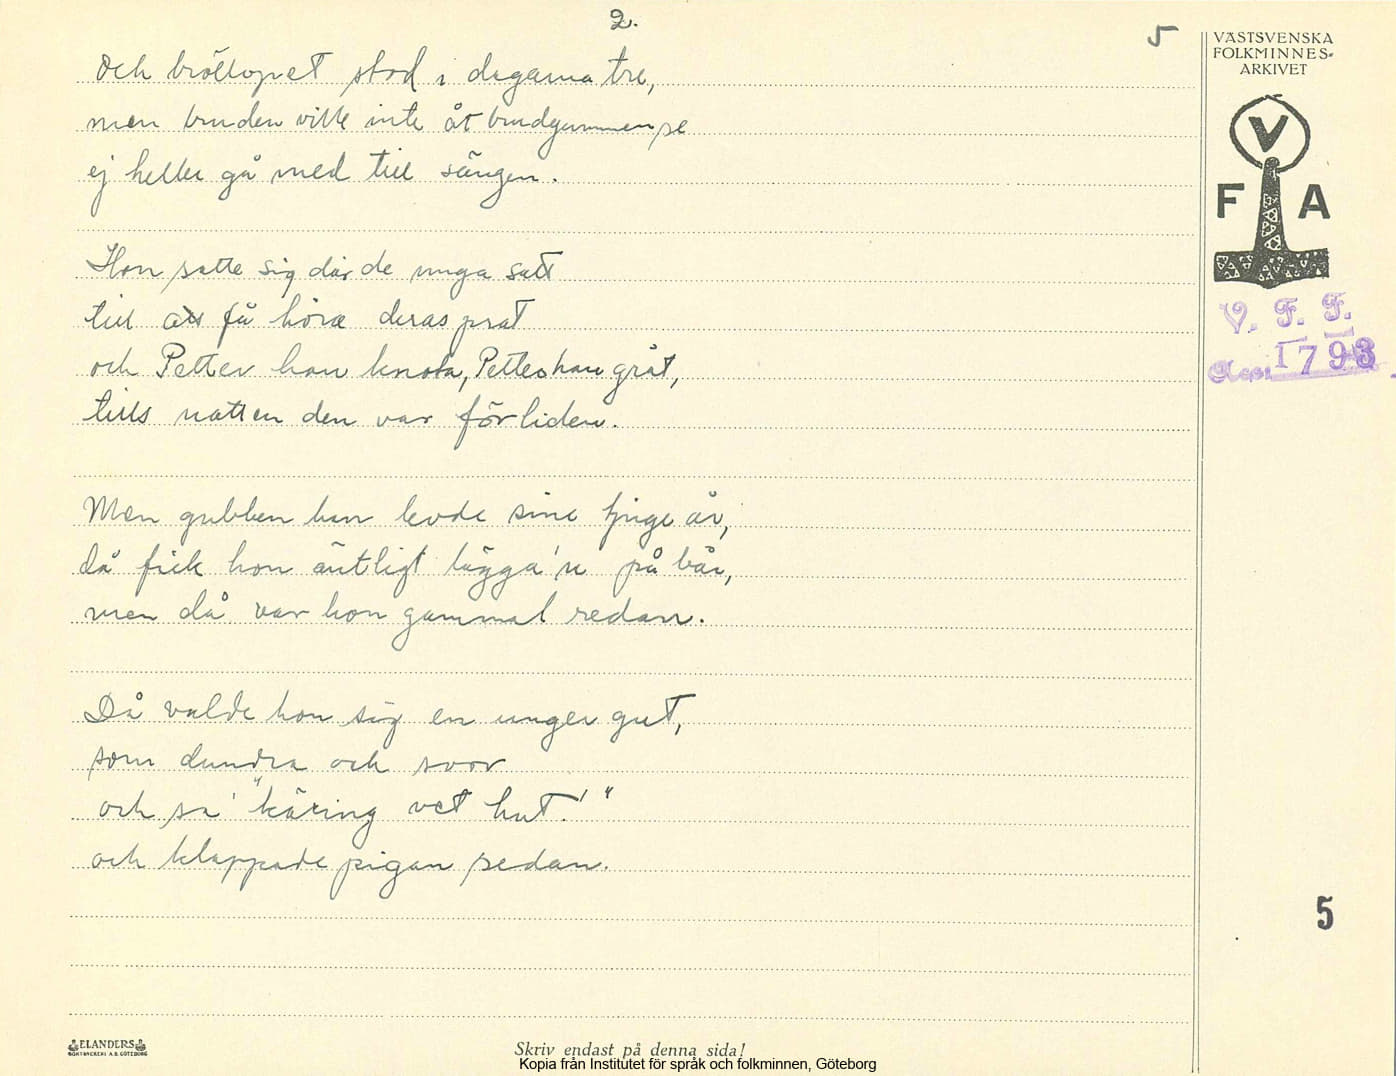 2.
5
VÄSTSVENSKA
FOLKMINNES-
ARKIVET
V
F A
V. F. F.
Acc: 1793
Och bröllopet stod i dagarna tre,
men bruden ville inte åt brudgummen se
ej heller gå med till sängen.
Hon satte sig där de unga satt
till att få höra deras prat
och Petter han knota, Petter han gråt,
tills natten den var förliden.
Men gubben han levde sine tjuge år,
då fick hon äntligt lägga'n på bår,
men då var hon gammal redan.
Då valde hon sig en unger gut,
som dundra och svor
och sa' "käring vet hut!"
och klappade pigan sedan.
5
ELANDERS
BOKTRYCKERI A.B. GÖTEBORG
Skriv endast på denna sida!
Kopia från Institutet för språk och folkminnen, Göteborg